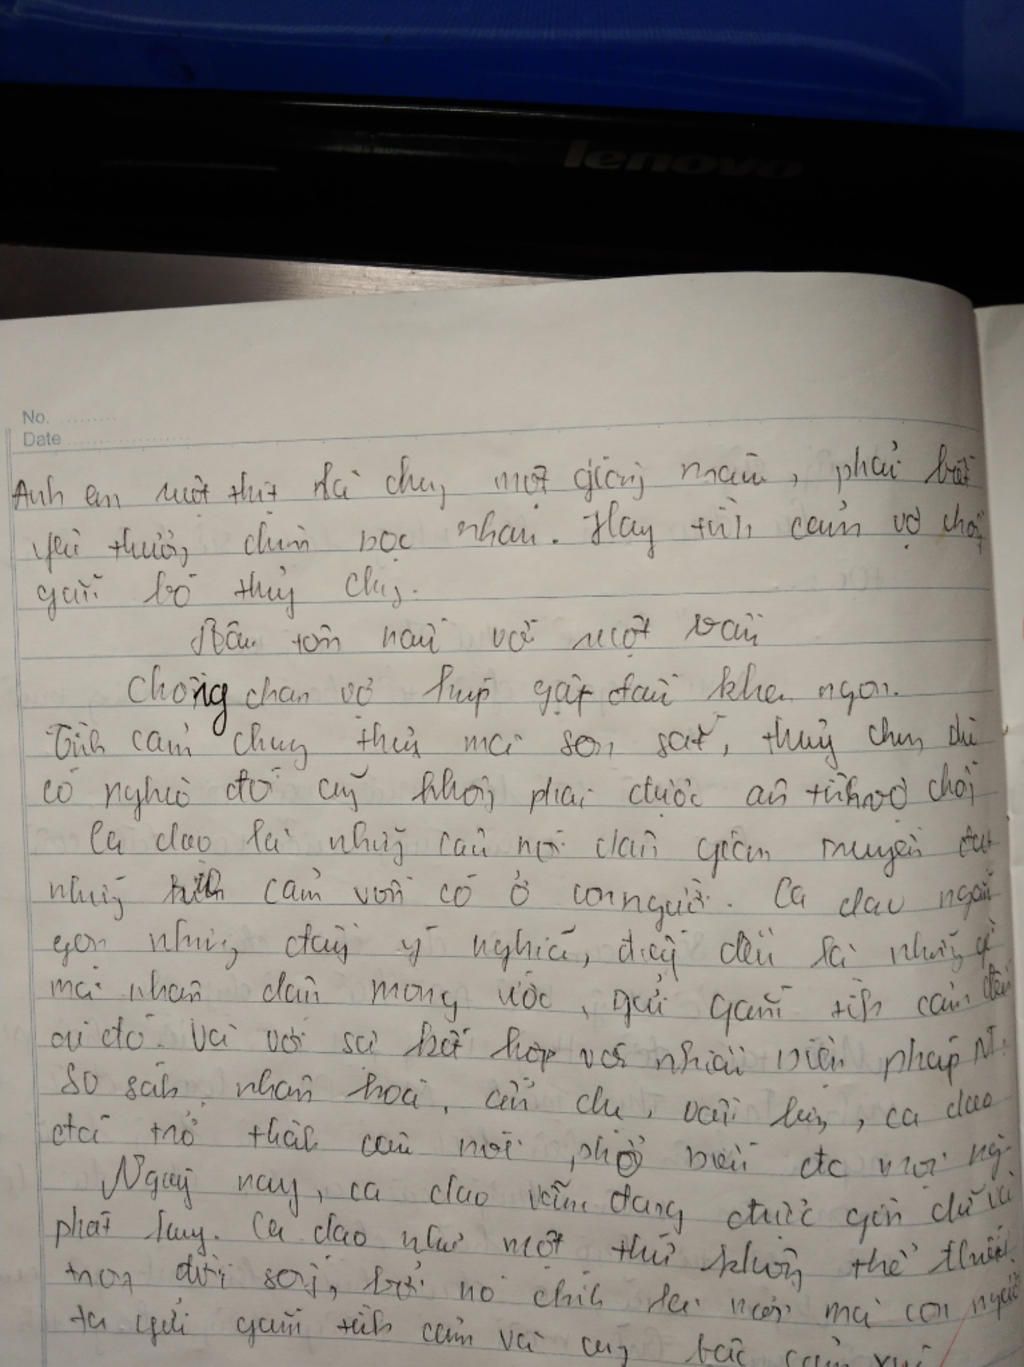 lenovo
No.
Date
Anh em ruột thịt là chung một giòng máu, phải biết
yêu thương đùm bọc nhau. Hay tình cảm vợ chồng
gắn bó thủy chung.
Râu tôm nấu với ruột bầu
Chồng chan vợ húp gật đầu khen ngon.
Tình cảm chung thủy mà son sắt, thủy chung dù
có nghèo đói cũng không phai được ân tình vợ chồng
Ca dao là những câu nói dân gian truyền đạt
những tình cảm vốn có ở con người. Ca dao ngắn
gọn nhưng đầy ý nghĩa, đấy đều là những gì
mà nhân dân mong ước, gửi gắm tình cảm đến
ai đó. Và với sự kết hợp với nhiều biện pháp NT:
So sánh, nhân hoá, ẩn dụ, vần lưng, ca dao
đã trở thành câu nói phổ biến đc mọi ng
Ngày nay, ca dao vẫn đang được gìn dữ và
phát huy. Ca dao như một thứ không thể thiếu
trong đời sống, bởi nó chính là nơi mà con người
ta gửi gắm tình cảm và cũng